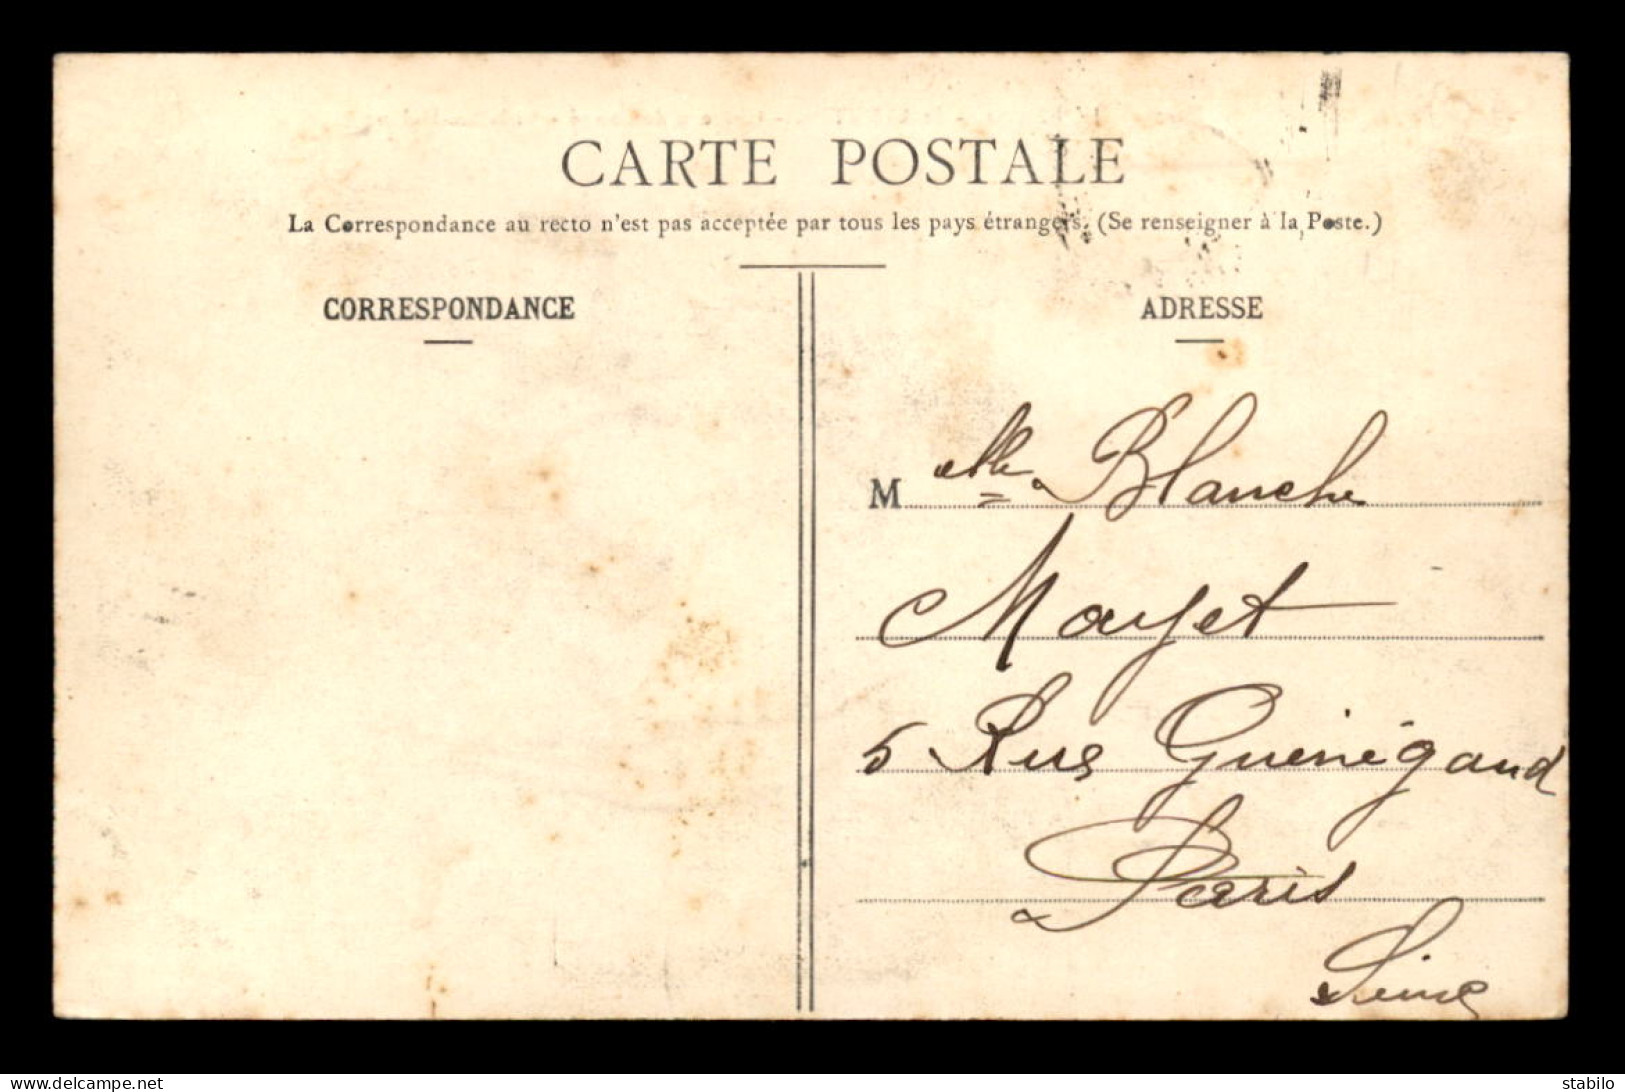 CARTE POSTALE
La Correspondance au recto n'est pas acceptée par tous les pays étrangers. (Se renseigner à la Poste.)
CORRESPONDANCE
ADRESSE
M elle Blanche
Mayet
5 Rue Guénégaud
Paris
Seine
delcampe.net
stabilo